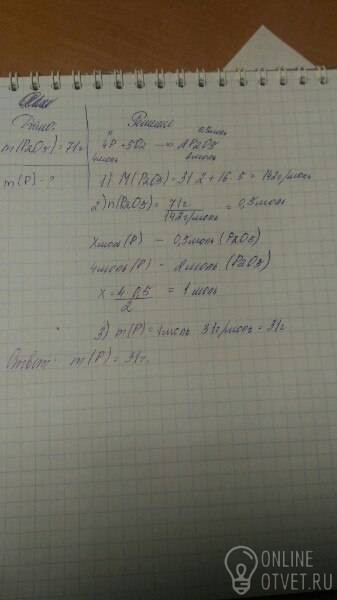 Дано:
Решение
m(P2O5)=71г
0,5моль
4P+5O2 → 2P2O5
4моль 2моль
m(P)-?
1) M(P2O5)=31·2+16·5=142г/моль
2) n(P2O5)=71г/142г/моль=0,5моль
Xмоль(P) - 0,5моль(P2O5)
4моль(P) - 2моль(P2O5)
X=4·0,5/2=1моль
3) m(P)=1моль·31г/моль=31г
Ответ: m(P)=31г.
ONLINE
OTVET.RU